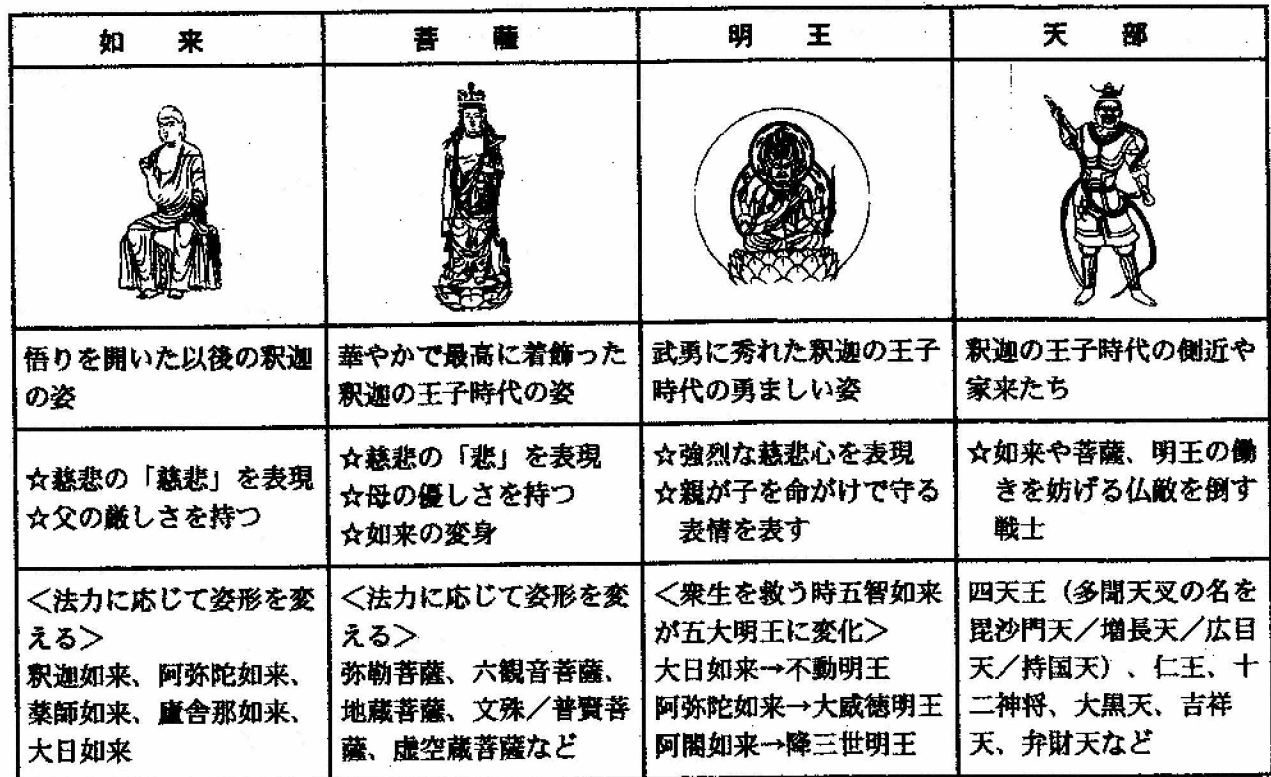 如来
菩薩
明王
天部
悟りを開いた以後の釈迦
の姿
華やかで最高に着飾った
釈迦の王子時代の姿
武勇に秀れた釈迦の王子
時代の勇ましい姿
釈迦の王子時代の側近や
家来たち
☆慈悲の「慈悲」を表現
☆父の厳しさを持つ
☆慈悲の「悲」を表現
☆母の優しさを持つ
☆如来の変身
☆強烈な慈悲心を表現
☆親が子を命がけで守る
表情を表す
☆如来や菩薩、明王の働
きを妨げる仏敵を倒す
戦士
<法力に応じて姿形を変
える>
釈迦如来、阿弥陀如来、
薬師如来、盧舎那如来、
大日如来
<法力に応じて姿形を変
える>
弥勒菩薩、六観音菩薩、
地蔵菩薩、文殊/普賢菩
薩、虚空蔵菩薩など
<衆生を救う時五智如来
が五大明王に変化>
大日如来→不動明王
阿弥陀如来→大威徳明王
阿閦如来→降三世明王
四天王(多聞天又の名を
毘沙門天/増長天/広目
天/持国天)、仁王、十
二神将、大黒天、吉祥
天、弁財天など